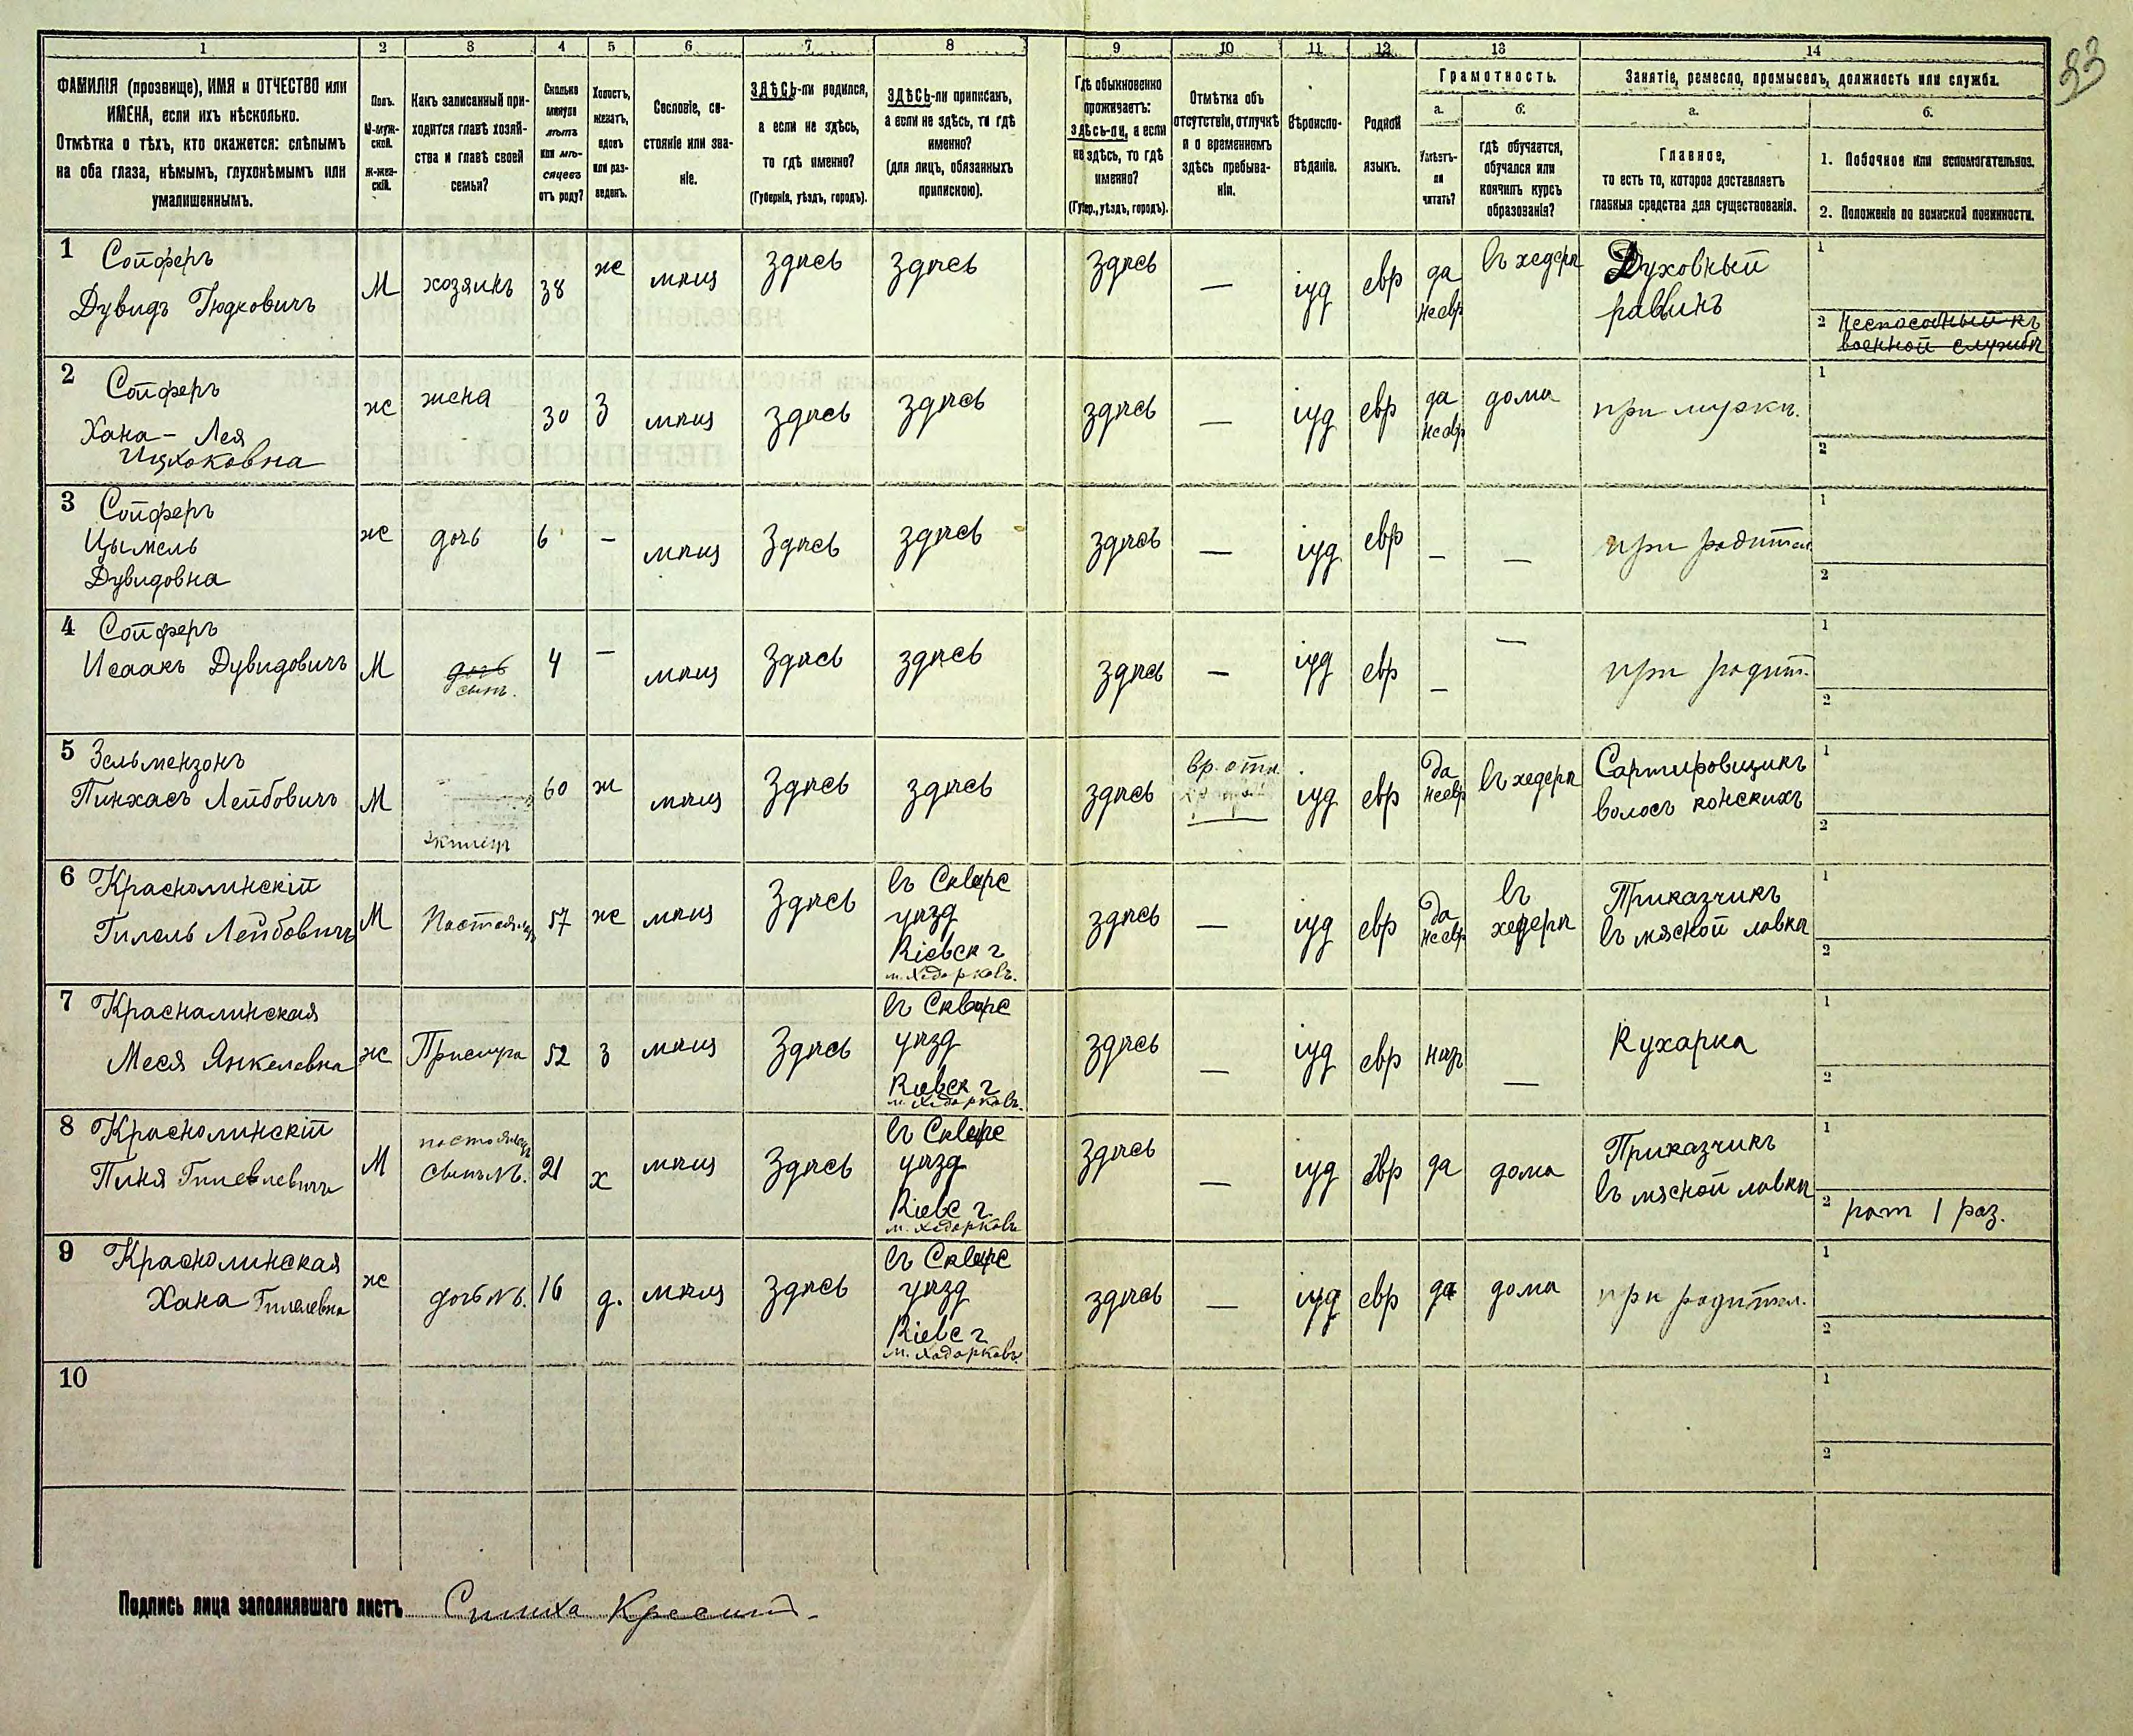 33
1 2 3 4 5 6 7 8 9 10 11 12 13 14
ФАМИЛІЯ (прозвище), ИМЯ и ОТЧЕСТВО или
ИМЕНА, если ихъ нѣсколько.
Отмѣтка о тѣхъ, кто окажется: слѣпымъ
на оба глаза, нѣмымъ, глухонѣмымъ или
умалишеннымъ.
Полъ.
М-муж-
ской.
Ж-жен-
скій.
Какъ записанный при-
ходится главѣ хозяй-
ства и главѣ своей
семьи?
Сколько
минуло
лѣтъ
или мѣ-
сяцевъ
отъ роду?
Холостъ,
женатъ,
вдовъ
или раз-
веденъ.
Сословіе, со-
стояніе или зва-
ніе.
ЗДѢСЬ-ли родился,
а если не здѣсь,
то гдѣ именно?
(Губернія, уѣздъ, городъ).
ЗДѢСЬ-ли приписанъ,
а если не здѣсь, то гдѣ
именно?
(для лицъ, обязанныхъ
припискою).
Гдѣ обыкновенно
проживаетъ:
здѣсь-ли, а если
не здѣсь, то гдѣ
именно?
(Губер., уѣздъ, городъ).
Отмѣтка объ
отсутствіи, отлучкѣ
и о временномъ
здѣсь пребыва-
ніи.
Вѣроиспо-
вѣданіе.
Родной
языкъ.
Грамотность.
а.
Умѣетъ-
ли
читать?
б.
гдѣ обучается,
обучался или
кончилъ курсъ
образованія?
Занятіе, ремесло, промыселъ, должность или служба.
а.
Главное,
то есть то, которое доставляетъ
главныя средства для существованія.
б.
1. Побочное или вспомогательное.
2. Положеніе по воинской повинности.
1 Сойферъ
Дувидъ Гюдковичъ М хозяинъ 38 ж мѣщ здѣсь здѣсь здѣсь — іуд евр да неевр въ хедерѣ Духовный раввинъ
1
2 Неспособный къ
военной службѣ
2 Сойферъ
Хана - Лея
Ицхоковна ж жена 30 З мѣщ здѣсь здѣсь здѣсь — іуд евр да неевр дома при мужѣ.
1
2
3 Сойферъ
Цымель
Дувидовна ж дочь 6 — мѣщ Здѣсь здѣсь здѣсь — іуд евр — — при родител
1
2
4 Сойферъ
Исаакъ Дувидовичъ М дочь сынъ. 4 — мѣщ Здѣсь здѣсь здѣсь — іуд евр — — при родит.
1
2
5 Зельмензонъ
Пинхасъ Лейбовичъ М жилецъ 60 ж мѣщ Здѣсь здѣсь здѣсь вр. отл іуд евр да неевр въ хедерѣ Сартировщикъ
волосъ конскихъ
1
2
6 Краснолинскій
Гилель Лейбовичъ М Постоялец 57 ж мѣщ Здѣсь въ Сквире
уѣзд
Кіевск г
м. Ходорковъ. здѣсь — іуд евр да неевр въ
хедерѣ Приказчикъ
въ мясной лавкѣ
1
2
7 Красналинская
Меся Янкелевна ж Прислуга 52 з мѣщ Здѣсь въ Сквире
уѣзд
Киевск г
м. Ходорковъ. здѣсь — іуд евр нѣт — Кухарка
1
2
8 Краснолинскій
Пиня Гилелевичъ М постоялецъ
сынъ №6. 21 х мѣщ Здѣсь въ Сквире
уѣзд
Киевс г.
м. Ходорковъ Здѣсь — іуд Евр да дома Приказчикъ
въ мясной лавкѣ
1
2 рат 1 раз.
9 Краснолинская
Хана Гилелевна ж дочь №6. 16 д. мѣщ Здѣсь въ Сквире
уѣзд
Киевс г
м. Ходорковъ здѣсь — іуд евр да дома при родител.
1
2
10
1
2
Подпись лица заполнявшаго листъ